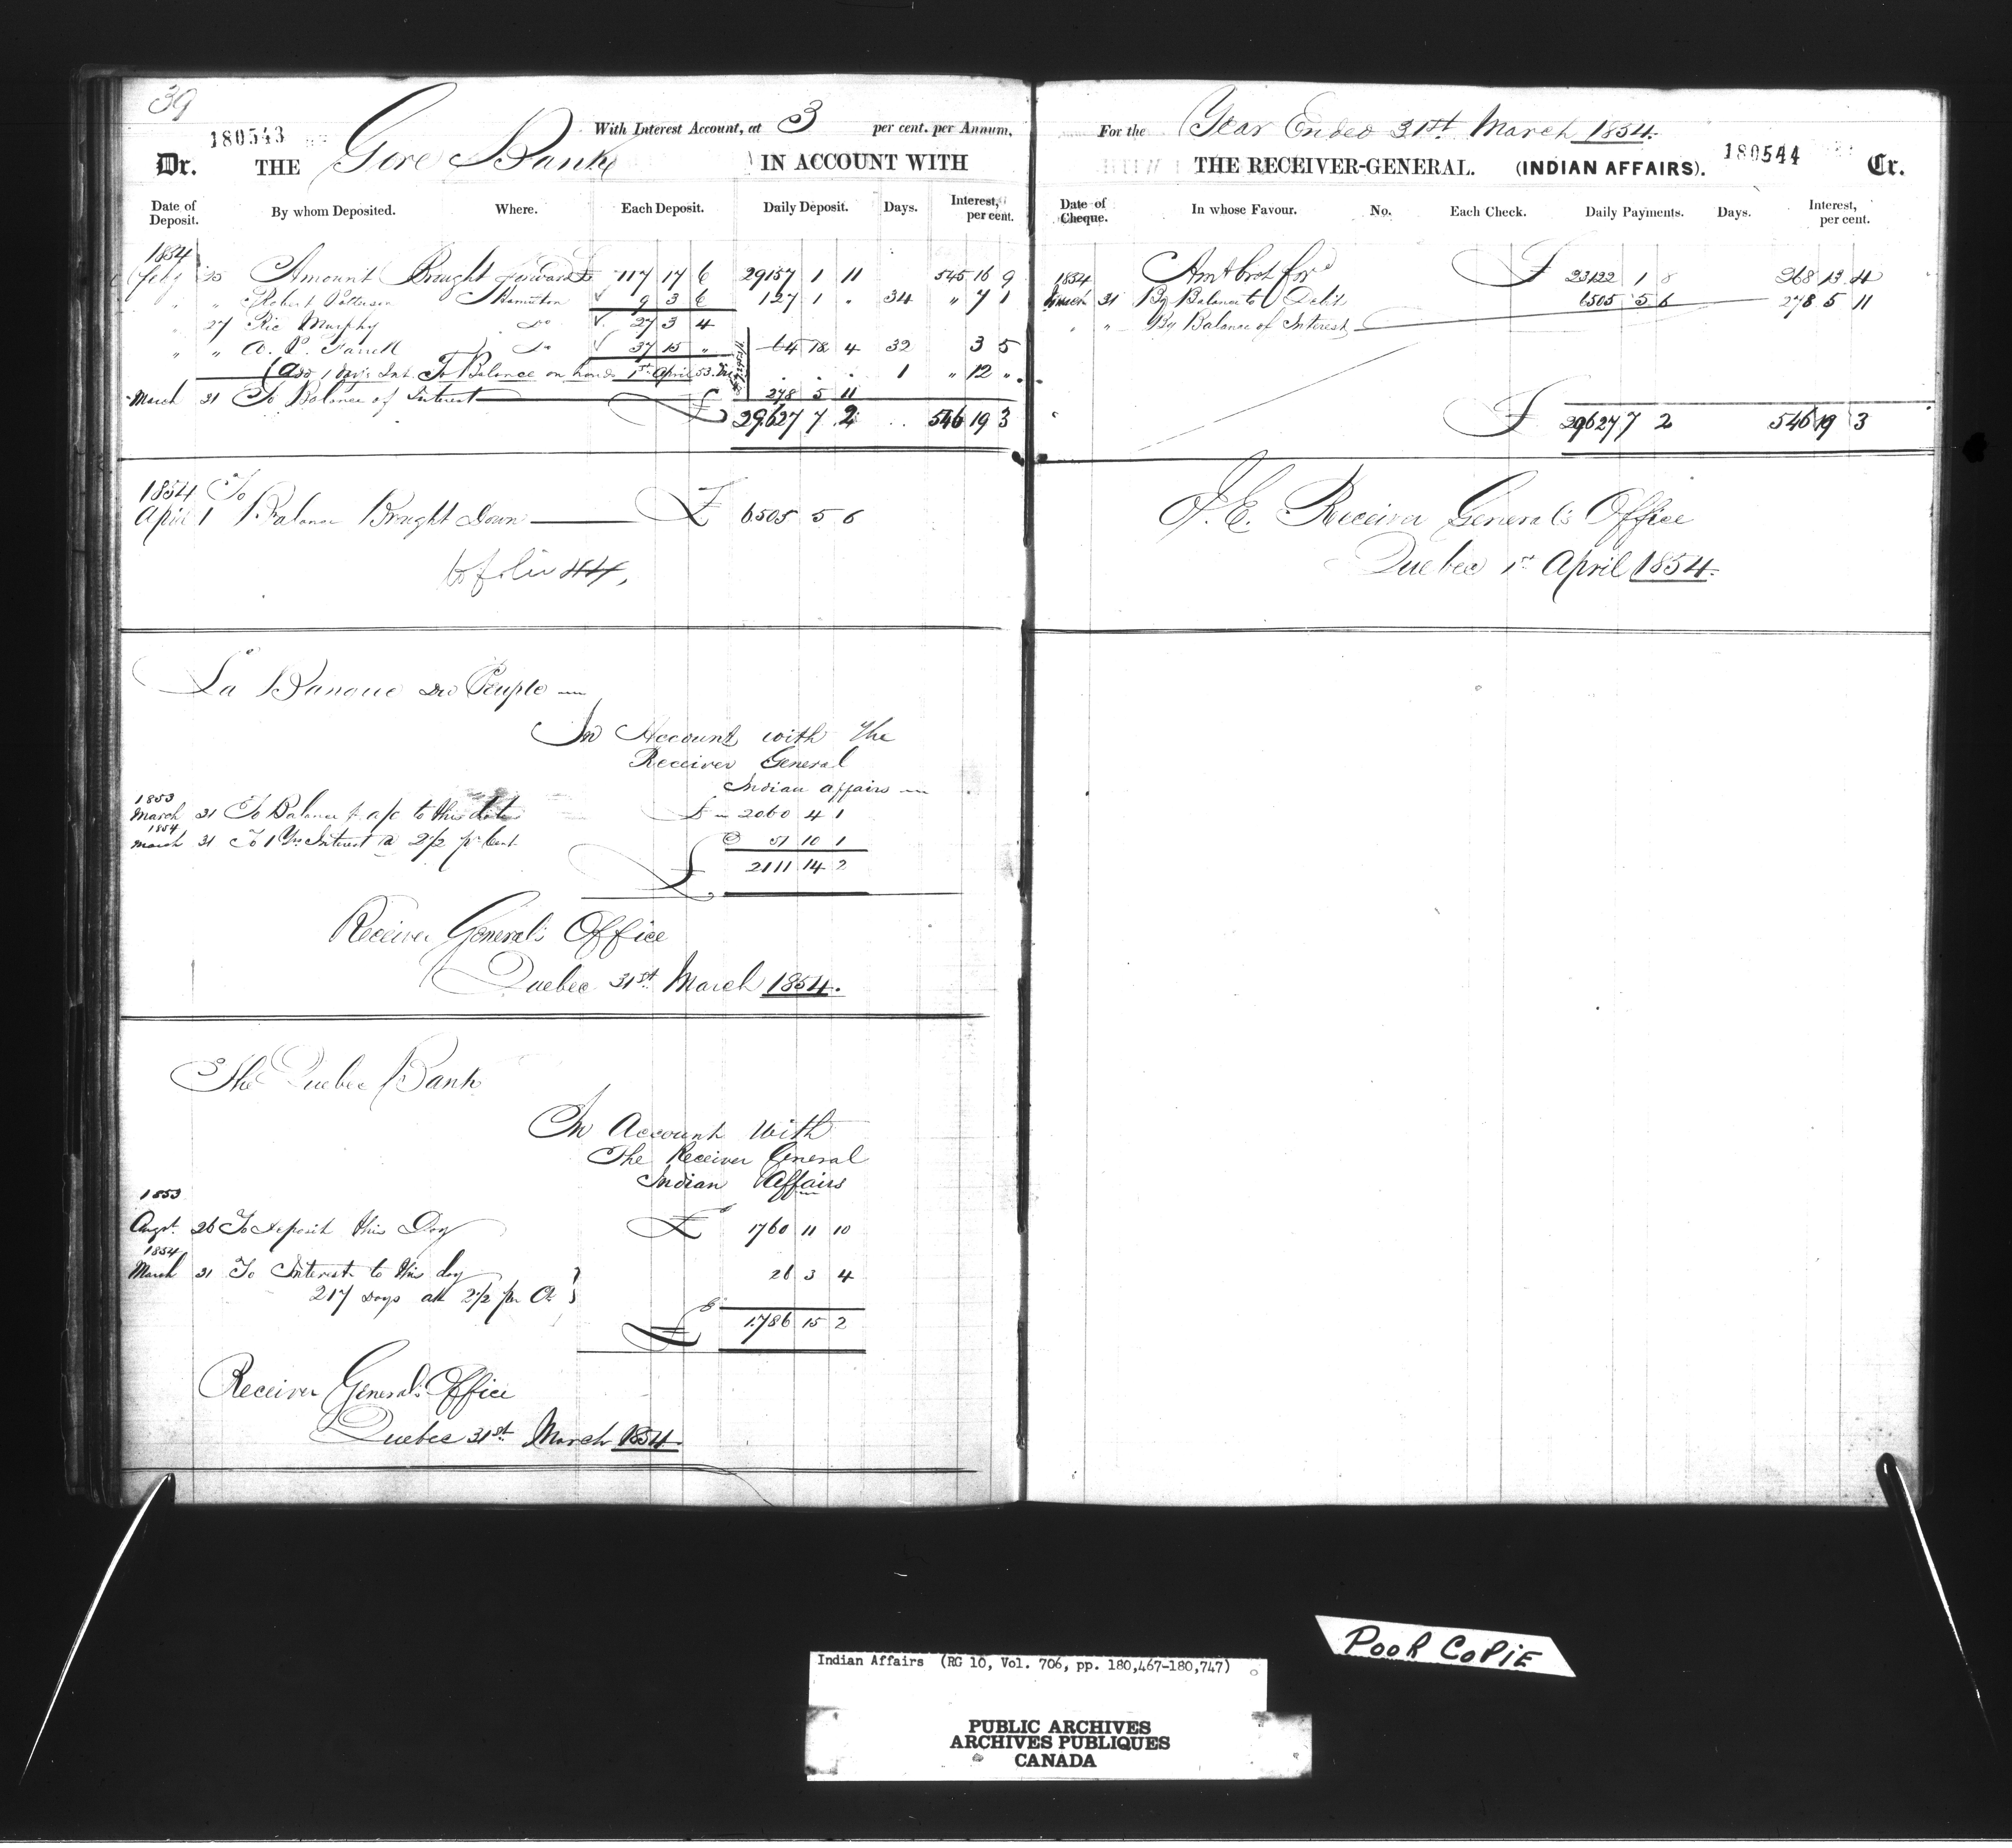 39
180543
With Interest Account, at 3 per cent. per Annum,
Dr. THE Gore Bank IN ACCOUNT WITH
Date of Deposit. By whom Deposited. Where. Each Deposit. Daily Deposit. Days. Interest, per cent.
1854
Feby 25 Amount Brought Forward 117 17 6 29157 1 11 545 16 9
" " Robert Patterson Hamilton √ 9 3 6 127 1 " 34 " 7 1
" 27 Ric Murphy do √ 27 3 4
" " Do √ 37 15 " 64 18 4 32 3 5
(Add 1 Day's Int. To Balance on hand 1st April 53. 1 " 12 "
March 31 To Balance of Interest 278 5 11
£ 29627 7 2 546 19 3
1854 To
April 1 Balance Brought Down £ 6505 5 6
to folio 44,
La Banque du Peuple
In Account with the
Receiver General
Indian affairs
1853
March 31 To Balance p. a/c to this date £ 2060 4 1
1854
March 31 To 1 Yrs Interest @ 2 1/2 pr Cent 51 10 1
£ 2111 14 2
Receiver General's Office
Quebec 31st March 1854.
The Quebec Bank
In Account With
The Receiver General
Indian Affairs
1853
Augst. 26 To Deposit this Day £ 1760 11 10
1854
March 31 To Interest to this day 26 3 4
217 Days at 2 1/2 per Ct
£ 1786 15 2
Receiver General's Office
Quebec 31st March 1854.
For the Year Ended 31st March 1854.
THE RECEIVER-GENERAL. (INDIAN AFFAIRS). 180544 Cr.
Date of Cheque. In whose Favour. No. Each Check. Daily Payments. Days. Interest, per cent.
1854 Amt brot ford £ 23122 1 8 268 13 4
March 31 By Balance to Debit 6505 5 6 278 5 11
" " By Balance of Interest
£ 29627 7 2 546 19 3
E. E. Receiver General's Office
Quebec 1st April 1854.
POOR COPIE
Indian Affairs (RG 10, Vol. 706, pp. 180,467-180,747)
PUBLIC ARCHIVES
ARCHIVES PUBLIQUES
CANADA